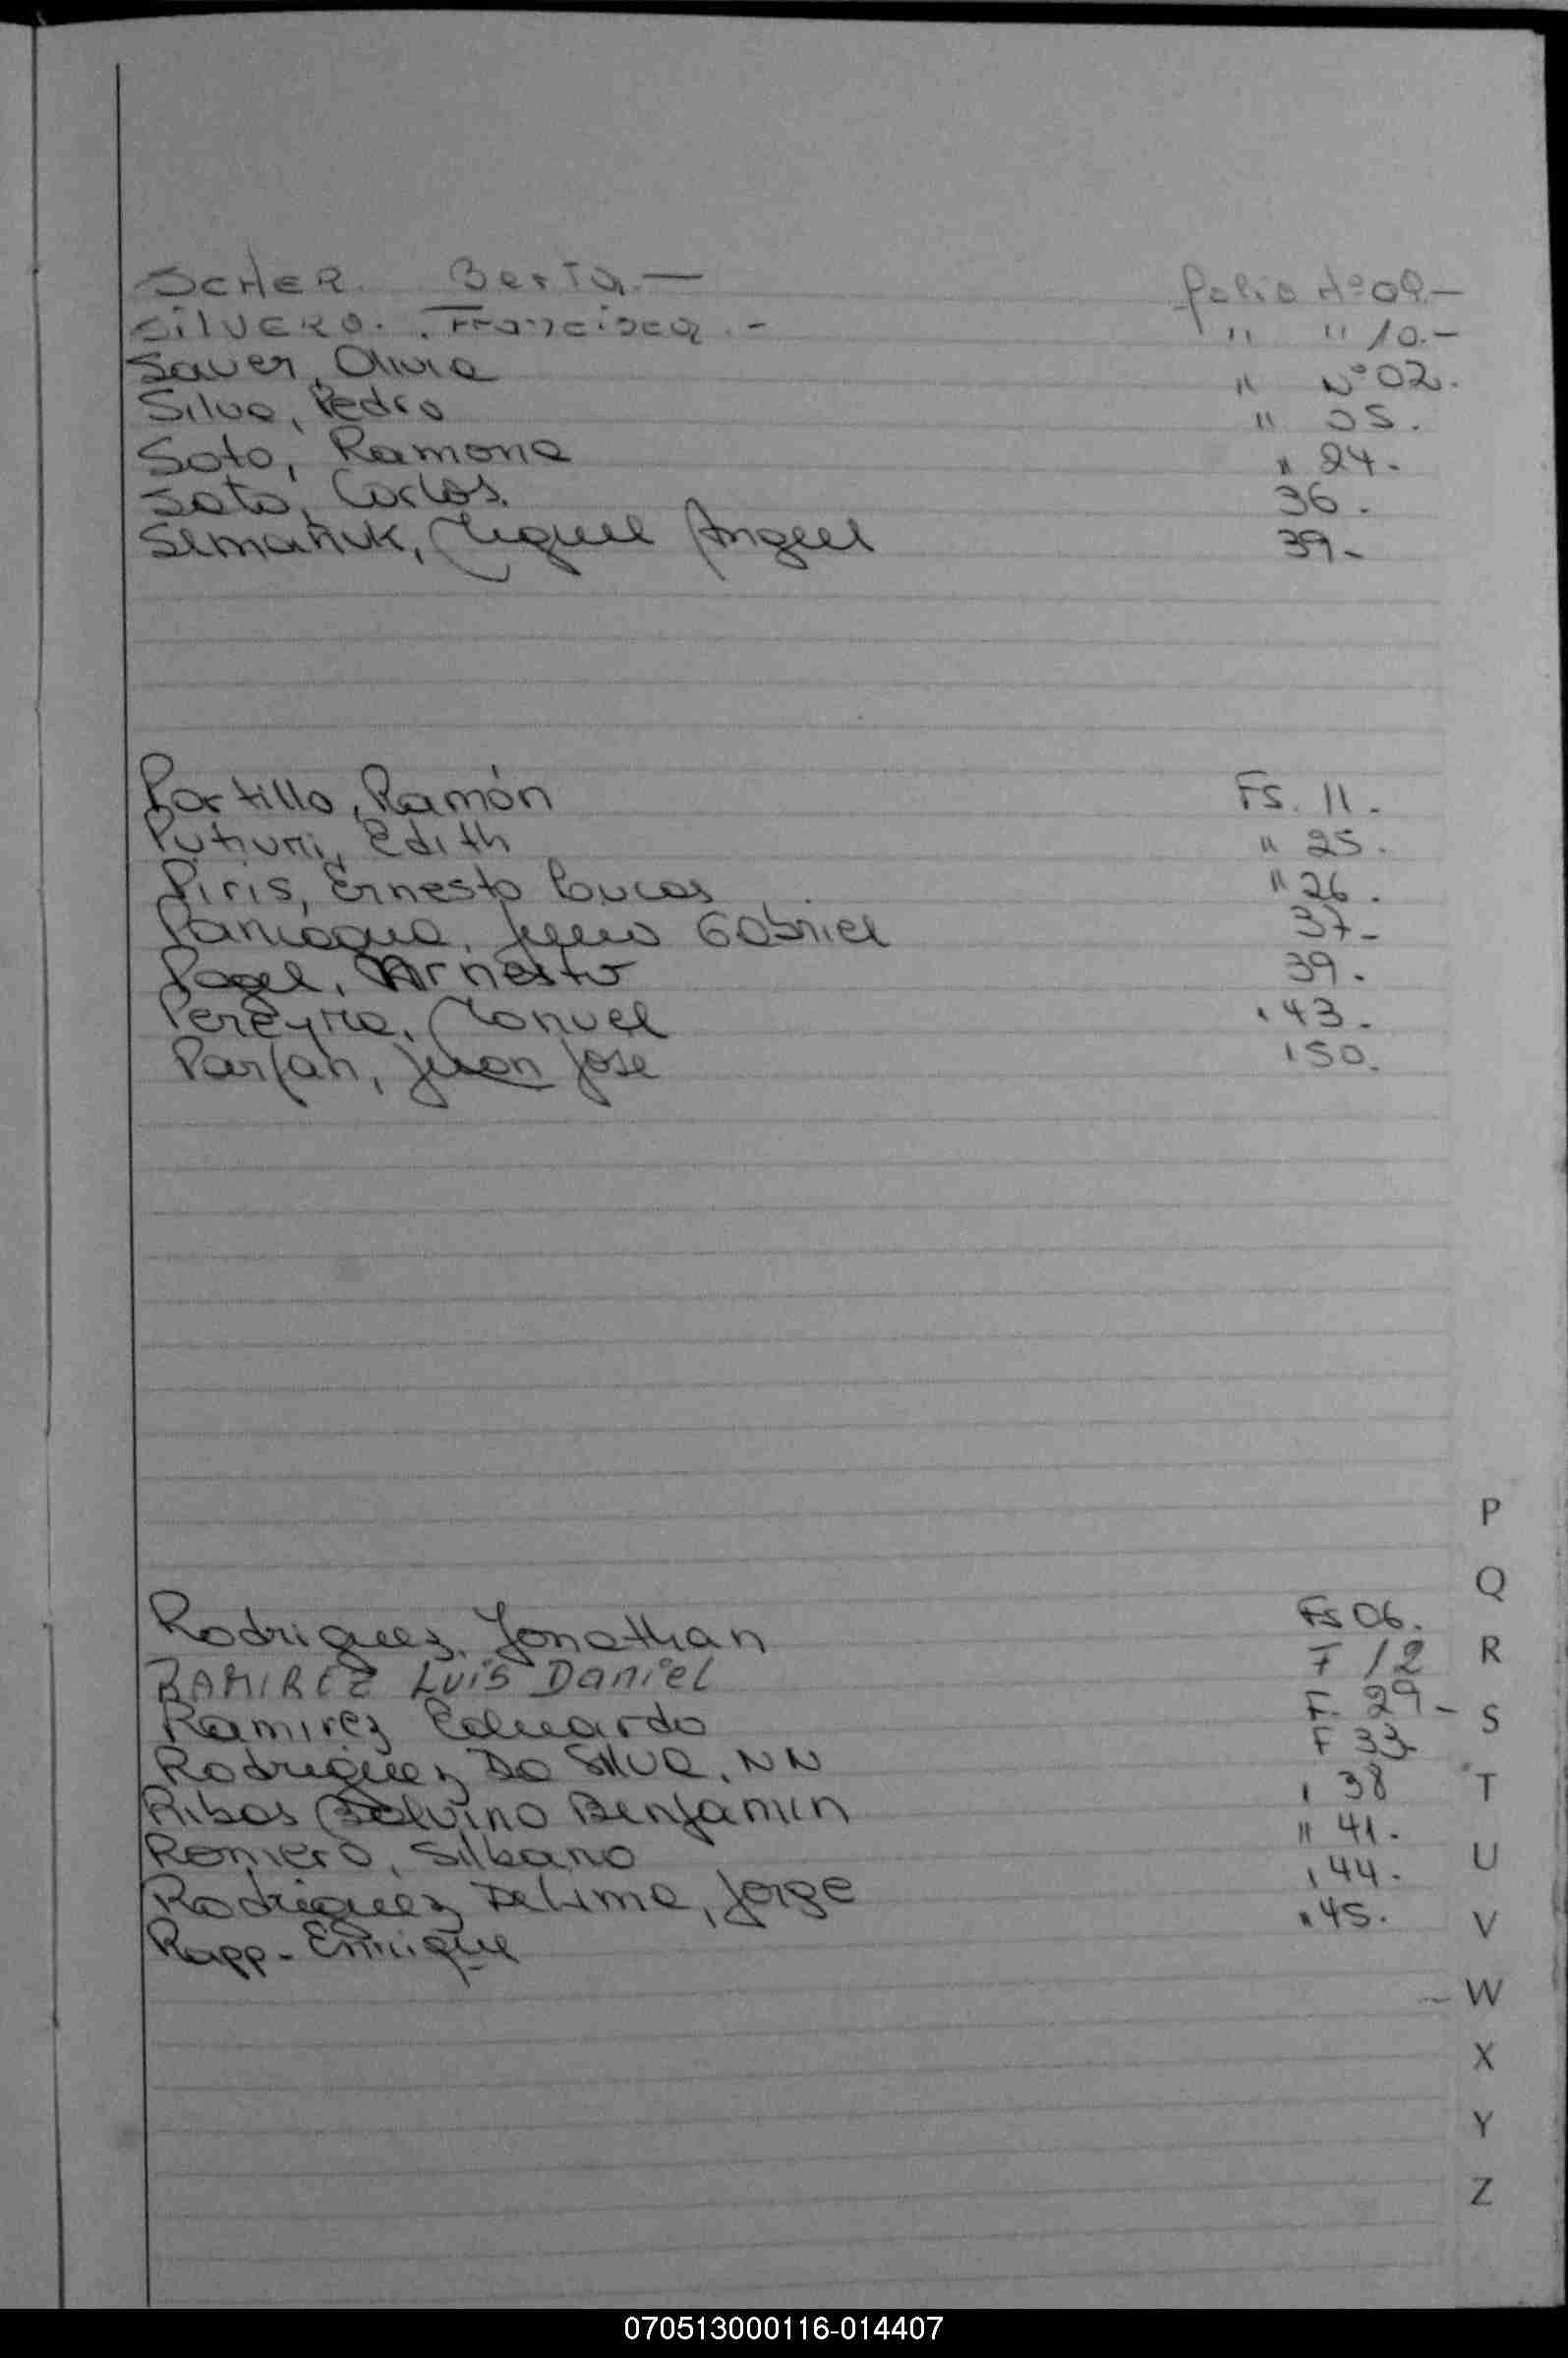 SCHER. Berta.— folio Nº 09.—
SILVERO. Francisca.- " " 10.—
Sauer, Olivia " Nº 02.
Silva, Pedro " 05.
Soto, Ramona " 24.
Soto, Carlos. 36.
Semañuk, Miguel Angel 39-
Portillo, Ramón Fs. 11.
Edith " 25.
Piris, Ernesto Lucas " 26.
Gabriel 37-
Pagel, Arnesto 39.
Pereyra, Manuel 43.
Parfan, Juan Jose 50.
Rodriguez, Jonathan Fs 06.
RAMIREZ Luis Daniel F 12
Ramirez Eduardo F. 29-
Rodriguez Da Silva, NN F 33
Ribas Balvino Benjamin 38
Romero, Silbano " 41.
Rodriguez De Lima, Jorge 44.
Rapp- Enrique " 45.
P
Q
R
S
T
U
V
W
X
Y
Z
070513000116-014407